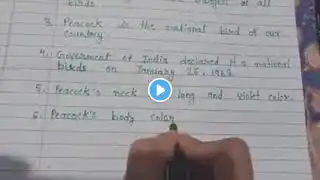 birds.
3. Peacock is the national bird of our
country
4. Government of India declared it a national
birds on January 26, 1963.
5. Peacock's neck long and violet color.
6. Peacock's body color